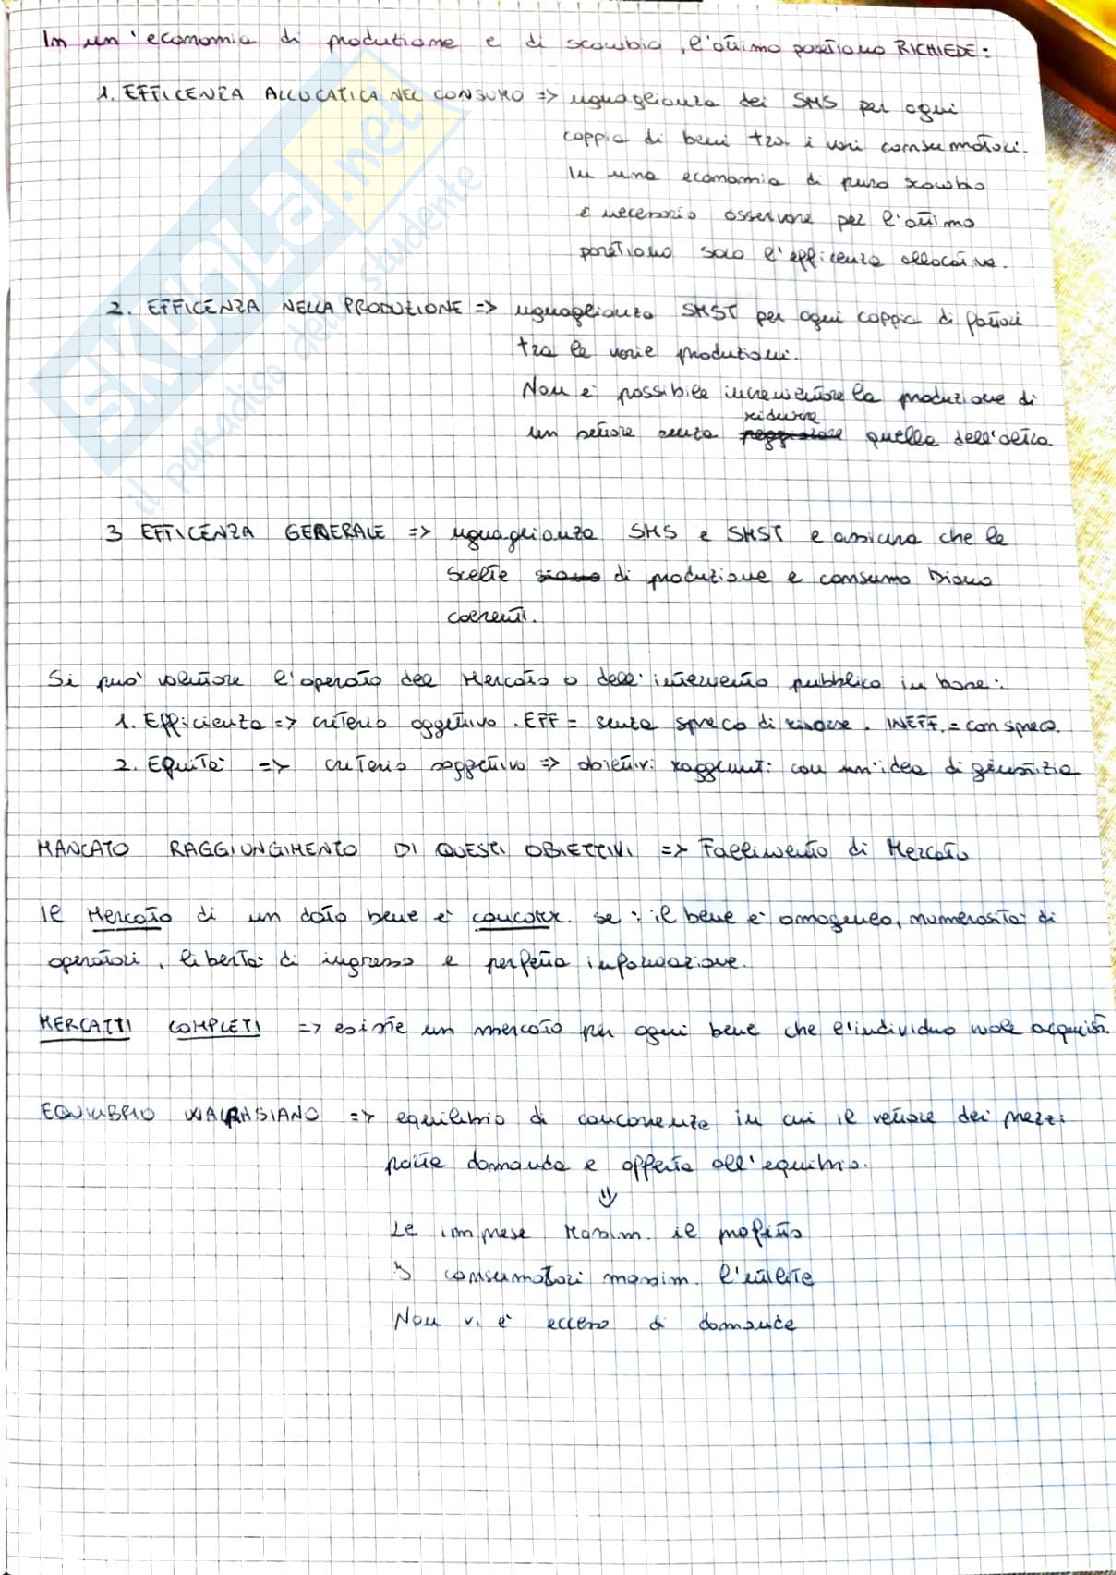 In un'economia di produzione e di scambio, l'ottimo paretiano RICHIEDE:
1. EFFICENZA ALLOCATICA NEL CONSUMO => uguaglianza dei SMS per ogni
coppia di beni tra i vari consumatori.
In una economia di puro scambio
è necessario osservare per l'ottimo
paretiano solo l'efficenza allocativa.
2. EFFICENZA NELLA PRODUZIONE => uguaglianza SMST per ogni coppia di fattori
tra le varie produzioni.
Non è possibile incrementare la produzione di
ridurre
un settore senza peggiorare quella dell'altro
3 EFFICENZA GENERALE => uguaglianza SMS e SMST e assicura che le
scelte siano di produzione e consumo siano
coerenti.
Si puo' valutare l'operato del Mercato o dell'intervento pubblico in base:
1. Efficienza => criterio oggettivo. EFF = senza spreco di risorse. INEFF. = con spreco.
2. Equità => criterio soggettivo => obiettivi raggiunti con un'idea di giustizia
MANCATO RAGGIUNGIMENTO DI QUESTI OBIETTIVI => Fallimento di Mercato
Il Mercato di un dato bene è concorr. se: il bene è omogeneo, numerosità di
operatori, libertà di ingresso e perfetta informazione.
MERCATI COMPLETI => esiste un mercato per ogni bene che l'individuo vuole acquist.
EQUILIBRIO WALRASIANO => equilibrio di concorrenza in cui il vettore dei prezzi
porta domanda e offerta all'equilibrio.
Le imprese Massim. il profitto
I consumatori massim. l'utilità
Non vi è eccesso di domanda
SKUOLA.net
il paradiso dello studente